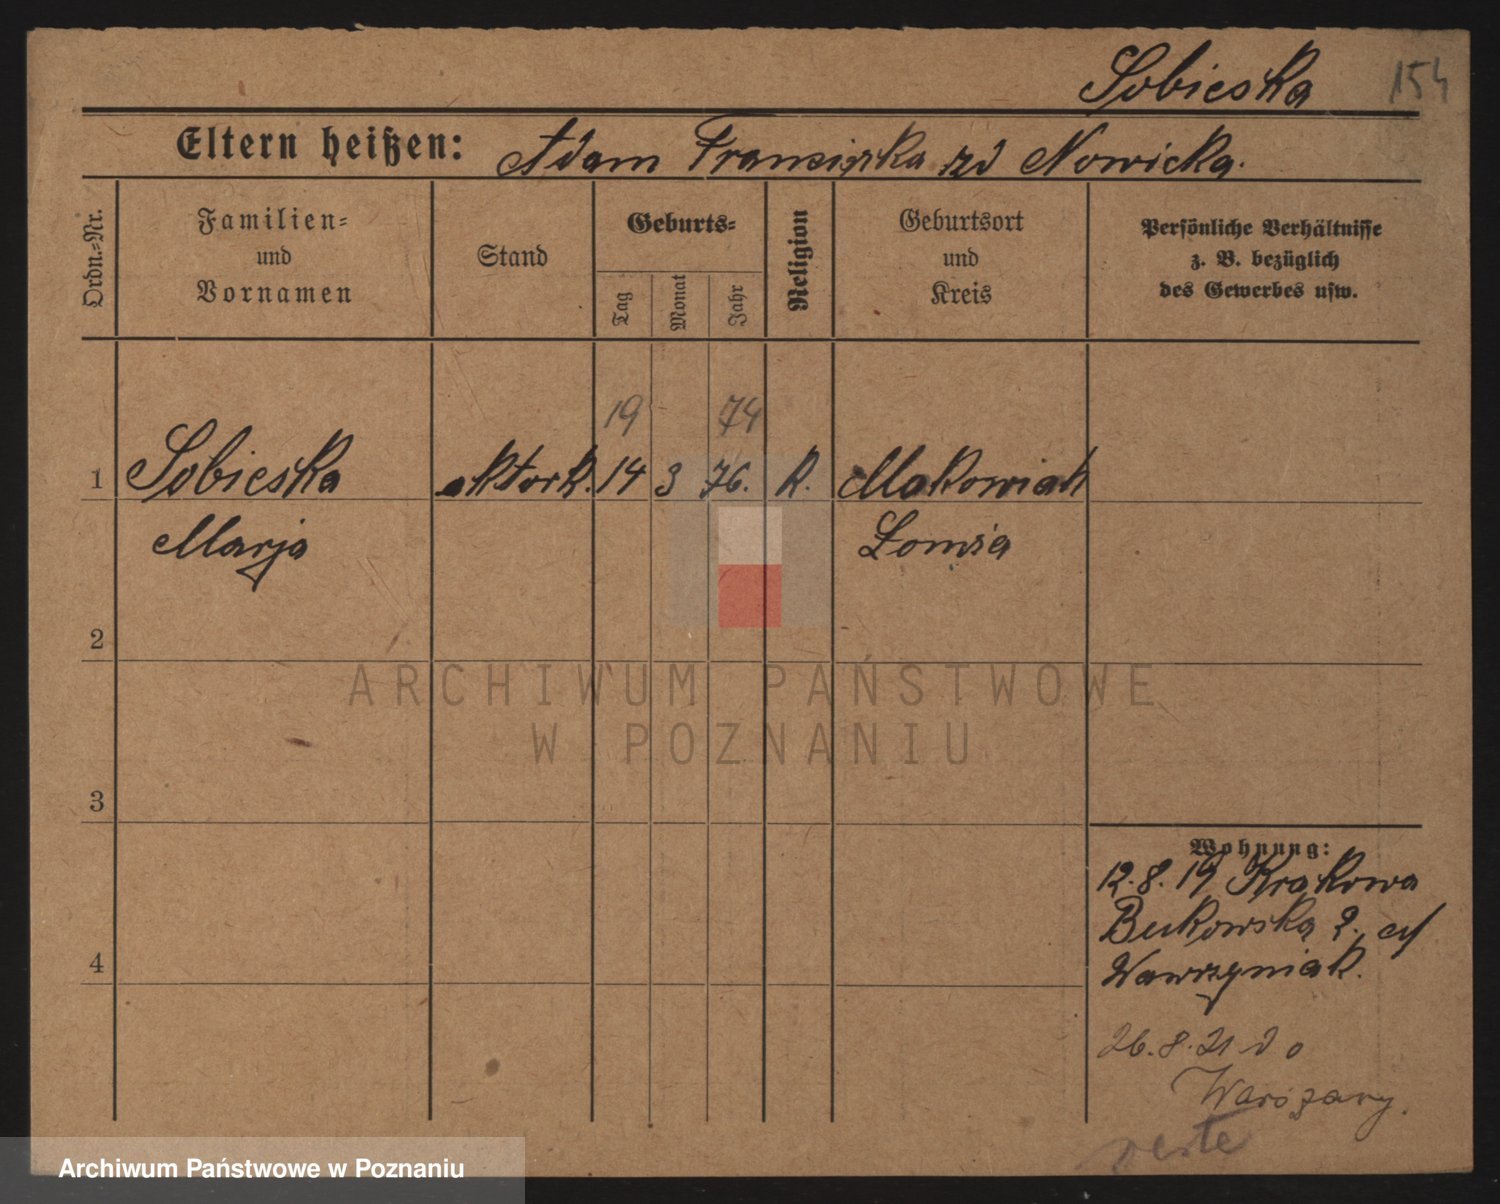 Sobieska 154
Eltern heißen: Adam Franciszka zd Nowicka.
Ordn.-Nr.
Familien-
und
Vornamen
Stand
Geburts-
Tag
Monat
Jahr
Religion
Geburtsort
und
Kreis
Persönliche Verhältnisse
z. B. bezüglich
des Gewerbes usw.
19 74
1 Sobieska aktork. 14 3 76. K. Makowiak
Marja Łomża
2
3
4
Wohnung:
12.8.19 Krakowa
Bukowska 2.
Wawrzyniak.
26.8.21 do
Warszawy.
ARCHIWUM PAŃSTWOWE
W POZNANIU
Archiwum Państwowe w Poznaniu